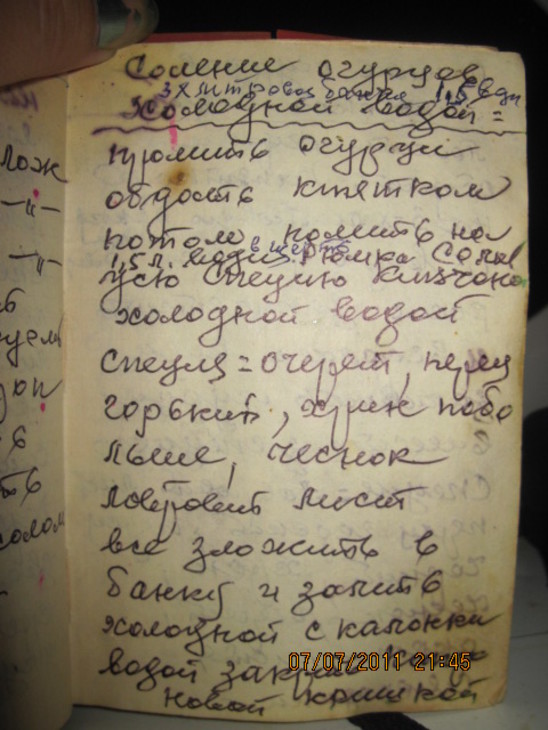 Соление огурцов
3х литровая банка 1,5 воды
холодной водой =
промить огурци
обдать кпятком
потом помить на
1,5 л. воды рюмка соли
усю специю
холодной водой
специя = очерет, перец
горький, хрин побо
льше, чеснок
лавровит лист
все зложить в
банку и залить
холодной с калонки
водой
новой кришкой
лож
—"—
—"—
солом
07/07/2011 21:45